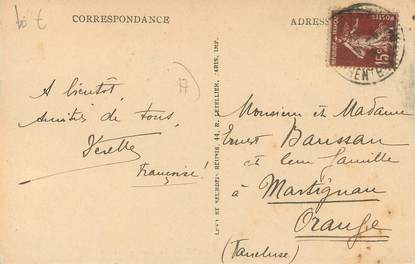 CORRESPONDANCE
ADRESSE
A bientôt,
Amitiés de tous,
Françoise!
Monsieur et Madame
Ernest Baussan
et leur famille
à Martignan
Orange
(Vaucluse)
LEVY ET NEURDEIN RÉUNIS, 44, R. LETELLIER, PARIS, IMP.
POSTES
15c